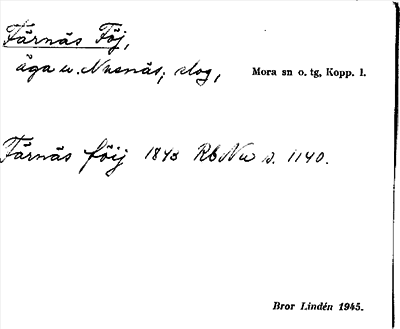 Färnäs Föj,
äga u. Nusnäs, skog, Mora sn o. tg, Kopp. l.
Färnäs föij 1843 Rb Nu s. 1140.
Bror Lindén 1945.